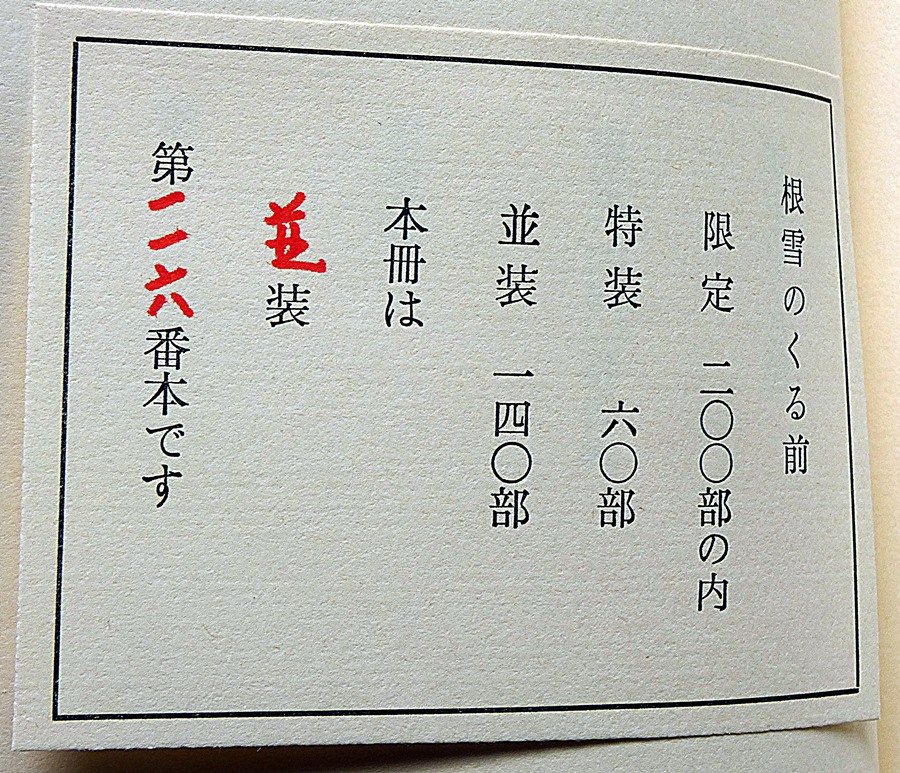 根雪のくる前
限定 二〇〇部の内
特装 六〇部
並装 一四〇部
本冊は
並装
第一一六番本です